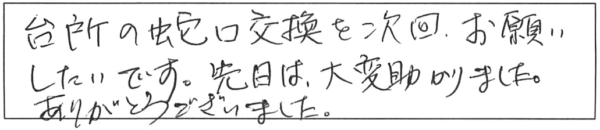 台所の蛇口交換を次回、お願い
したいです。先日は、大変助かりました。
ありがとうございました。